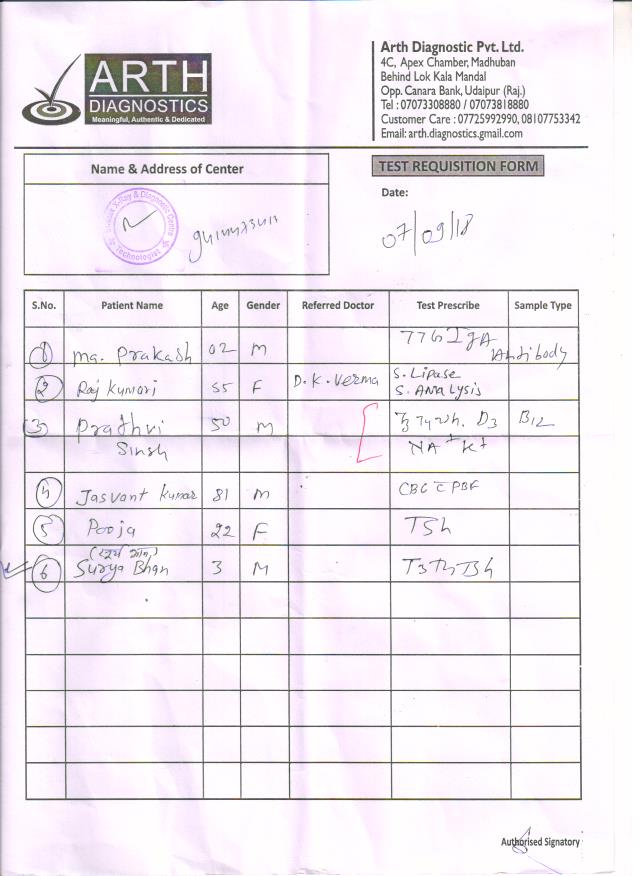 ARTH
DIAGNOSTICS
Meaningful, Authentic & Dedicated
Arth Diagnostic Pvt. Ltd.
4C, Apex Chamber, Madhuban
Behind Lok Kala Mandal
Opp. Canara Bank, Udaipur (Raj.)
Tel : 07073308880 / 07073818880
Customer Care : 07725992990, 08107753342
Email: arth.diagnostics.gmail.com
Name & Address of Center
X-Ray & Diagnostic Centre
Technologist
TEST REQUISITION FORM
Date:
07/09/18
S.No. Patient Name Age Gender Referred Doctor Test Prescribe Sample Type
1 Ma. Prakash 02 M IgA Antibody
2 Raj Kumari 55 F D.K. Verma S. Lipase
S. Analysis
3 Prathvi 50 M D3 B12
Singh NA+ K+
4 Jasvant Kumar 81 M CBC C̅ PBF
5 Pooja 22 F TSh
(सूर्य भान)
6 Surya Bhan 3 M T3 T4 TSh
Authorised Signatory